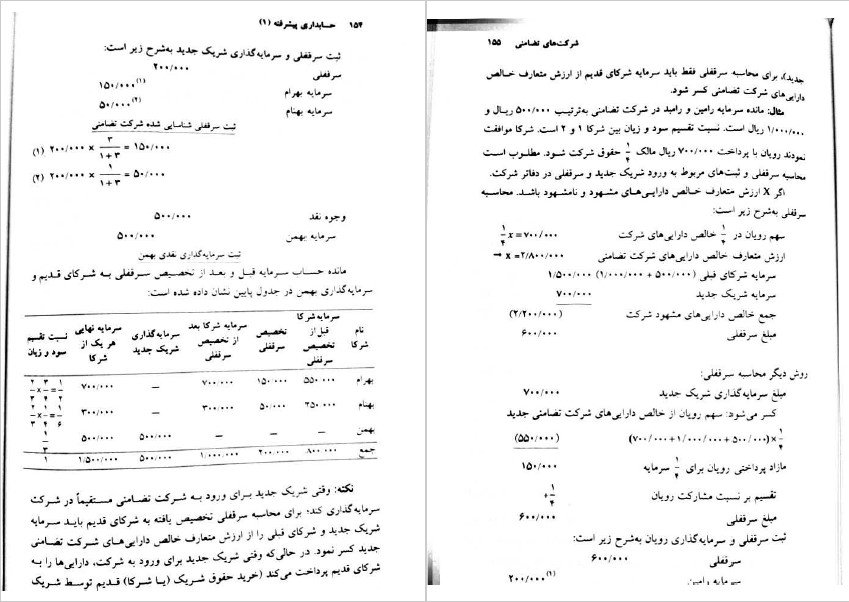 ۱۵۴ حسابداری پیشرفته (۱)
ثبت سرقفلی و سرمایه‌گذاری شریک جدید به‌شرح زیر است:
سرقفلی ۲۰۰/۰۰۰
سرمایه بهرام ۱۵۰/۰۰۰(۱)
سرمایه بهنام ۵۰/۰۰۰(۲)
ثبت سرقفلی شناسایی شده شرکت تضامنی
(۱) ۲۰۰/۰۰۰ × ۳/(۱+۳) = ۱۵۰/۰۰۰
(۲) ۲۰۰/۰۰۰ × ۱/(۱+۳) = ۵۰/۰۰۰
وجوه نقد ۵۰۰/۰۰۰
سرمایه بهمن ۵۰۰/۰۰۰
ثبت سرمایه‌گذاری نقدی بهمن
مانده حساب سرمایه قبل و بعد از تخصیص سرقفلی به شرکای قدیم و
سرمایه‌گذاری بهمن در جدول پایین نشان داده شده است:
نام شرکا | سرمایه شرکا قبل از تخصیص سرقفلی | تخصیص سرقفلی | سرمایه شرکا بعد از تخصیص سرقفلی | سرمایه‌گذاری شریک جدید | سرمایه نهایی هر یک از شرکا | نسبت تقسیم سود و زیان
بهرام | ۵۵۰ ۰۰۰ | ۱۵۰ ۰۰۰ | ۷۰۰ ۰۰۰ | — | ۷۰۰/۰۰۰ | ۲/۳ × ۳/۴ = ۱/۲
بهنام | ۲۵۰ ۰۰۰ | ۵۰/۰۰۰ | ۳۰۰ ۰۰۰ | — | ۳۰۰/۰۰۰ | ۲/۳ × ۱/۴ = ۱/۶
بهمن | — | — | — | ۵۰۰/۰۰۰ | ۵۰۰/۰۰۰ | ۱/۳
جمع | ۸۰۰ ۰۰۰ | ۲۰۰ ۰۰۰ | ۱/۰۰۰ ۰۰۰ | ۵۰۰/۰۰۰ | ۱/۵۰۰/۰۰۰ | ۱
نکته: وقتی شریک جدید برای ورود به شرکت تضامنی مستقیماً در شرکت
سرمایه‌گذاری کند؛ برای محاسبه سرقفلی تخصیص یافته به شرکای قدیم باید سرمایه
شریک جدید و شرکای قبلی را از ارزش متعارف خالص دارایی‌های شرکت تضامنی
جدید کسر نمود. در حالی‌که وقتی شریک جدید برای ورود به شرکت، دارایی‌ها را به
شرکای قدیم پرداخت می‌کند (خرید حقوق شریک (یا شرکا) قدیم توسط شریک
شرکت‌های تضامنی ۱۵۵
جدید)، برای محاسبه سرقفلی فقط باید سرمایه شرکای قدیم از ارزش متعارف خالص
دارایی‌های شرکت تضامنی کسر شود.
مثال: مانده سرمایه رامین و رامبد در شرکت تضامنی به‌ترتیب ۵۰۰/۰۰۰ ریال و
۱/۰۰۰/۰۰۰ ریال است. نسبت تقسیم سود و زیان بین شرکا ۱ و ۲ است. شرکا موافقت
نمودند رویان با پرداخت ۷۰۰/۰۰۰ ریال مالک ۱/۴ حقوق شرکت شود. مطلوب است
محاسبه سرقفلی و ثبت‌های مربوط به ورود شریک جدید و سرقفلی در دفاتر شرکت.
اگر X ارزش متعارف خالص دارایی‌های مشهود و نامشهود باشد. محاسبه
سرقفلی به‌شرح زیر است:
سهم رویان در ۱/۴ خالص دارایی‌های شرکت ۱/۴ x = ۷۰۰/۰۰۰
ارزش متعارف خالص دارایی‌های شرکت تضامنی → x = ۲/۸۰۰/۰۰۰
سرمایه شرکای قبلی (۵۰۰/۰۰۰ + ۱/۰۰۰/۰۰۰) ۱/۵۰۰/۰۰۰
سرمایه شریک جدید ۷۰۰/۰۰۰
جمع خالص دارایی‌های مشهود شرکت (۲/۲۰۰/۰۰۰)
مبلغ سرقفلی ۶۰۰/۰۰۰
روش دیگر محاسبه سرقفلی:
مبلغ سرمایه‌گذاری شریک جدید ۷۰۰/۰۰۰
کسر می‌شود: سهم رویان از خالص دارایی‌های شرکت تضامنی جدید
(۷۰۰/۰۰۰ + ۱/۰۰۰/۰۰۰ + ۵۰۰/۰۰۰) × ۱/۴ (۵۵۰/۰۰۰)
مازاد پرداختی رویان برای ۱/۴ سرمایه ۱۵۰/۰۰۰
تقسیم بر نسبت مشارکت رویان ÷ ۱/۴
مبلغ سرقفلی ۶۰۰/۰۰۰
ثبت سرقفلی و سرمایه‌گذاری رویان به‌شرح زیر است:
سرقفلی ۶۰۰/۰۰۰
سرمایه رامین ۲۰۰/۰۰۰(۱)